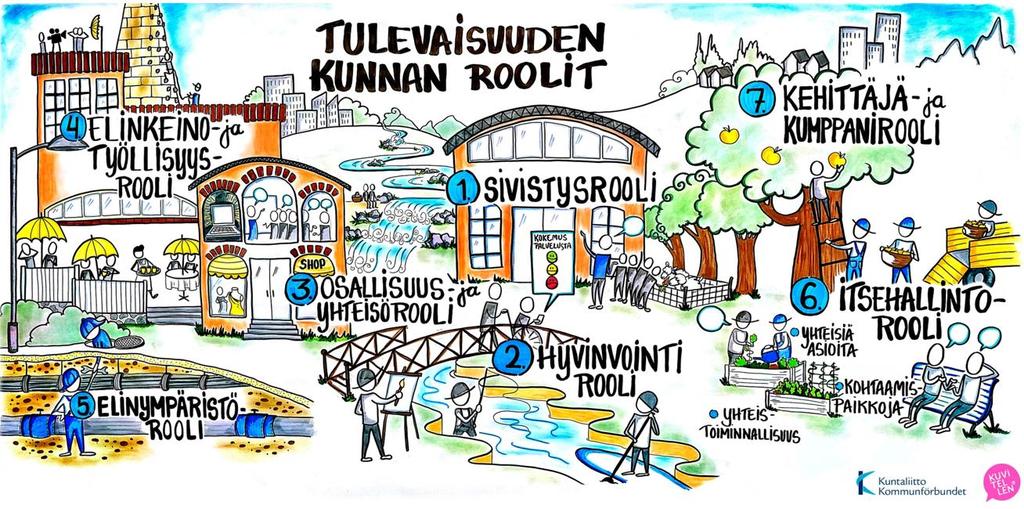 TULEVAISUUDEN
KUNNAN ROOLIT
1. SIVISTYSROOLI
2. HYVINVOINTI
ROOLI
3. OSALLISUUS- ja
YHTEISÖROOLI
4 ELINKEINO- ja
TYÖLLISYYS-
ROOLI
5 ELINYMPÄRISTÖ-
ROOLI
6. ITSEHALLINTO-
ROOLI
YHTEISIÄ
ASIOITA
KOHTAAMIS-
PAIKKOJA
YHTEIS-
TOIMINNALLISUUS
7. KEHITTÄJÄ- ja
KUMPPANIROOLI
SHOP
KOKEMUS
PALVELUSTA
Kuntaliitto
Kommunförbundet
KUVI
TEL
LEN